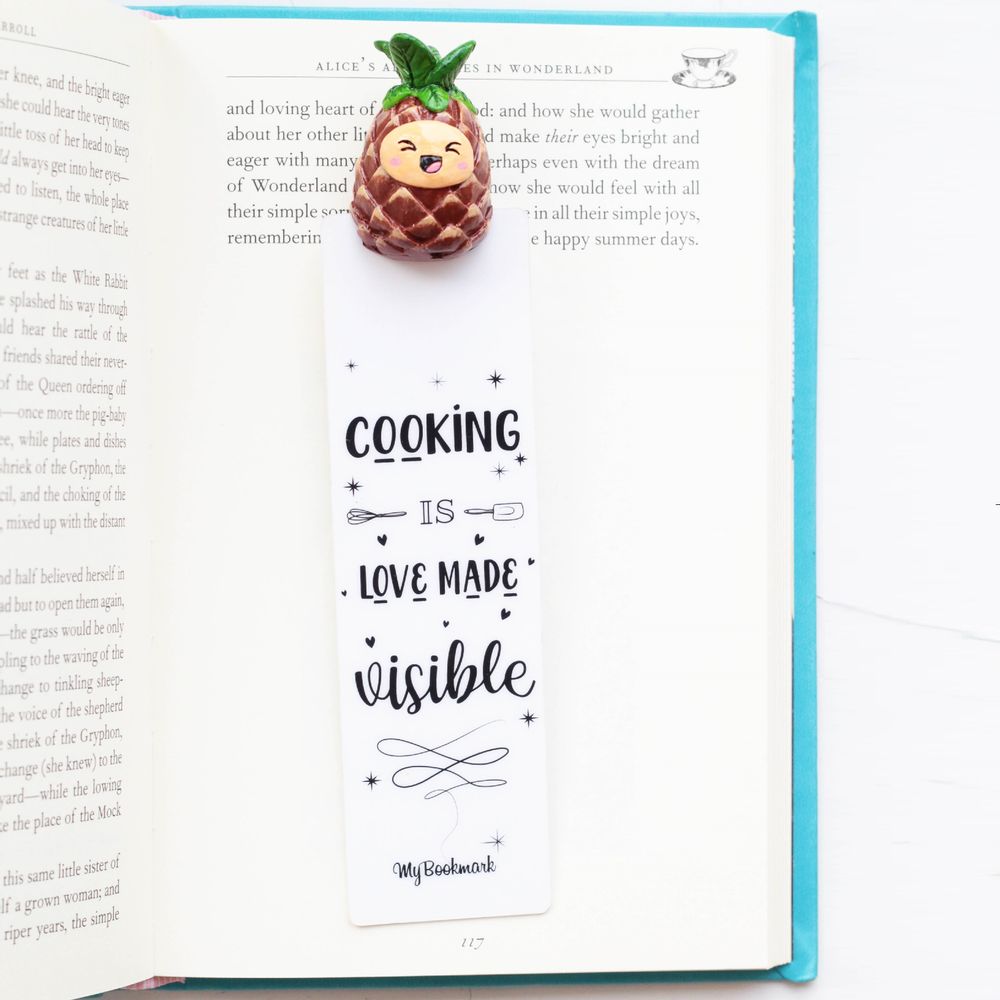 RROLL
er knee, and the bright eager
she could hear the very tones
ittle toss of her head to keep
ld always get into her eyes—
ed to listen, the whole place
strange creatures of her little
feet as the White Rabbit
e splashed his way through
uld hear the rattle of the
friends shared their never-
of the Queen ordering off
—once more the pig-baby
ee, while plates and dishes
shriek of the Gryphon, the
cil, and the choking of the
, mixed up with the distant
nd half believed herself in
ad but to open them again,
—the grass would be only
pling to the waving of the
hange to tinkling sheep-
the voice of the shepherd
e shriek of the Gryphon,
change (she knew) to the
yard—while the lowing
ke the place of the Mock
this same little sister of
lf a grown woman; and
riper years, the simple
ALICE'S A ES IN WONDERLAND
and loving heart of od: and how she would gather
about her other lit d make their eyes bright and
eager with many erhaps even with the dream
of Wonderland how she would feel with all
their simple sorr e in all their simple joys,
rememberin e happy summer days.
COOKING
IS
LOVE MADE
visible
MyBookmark
117